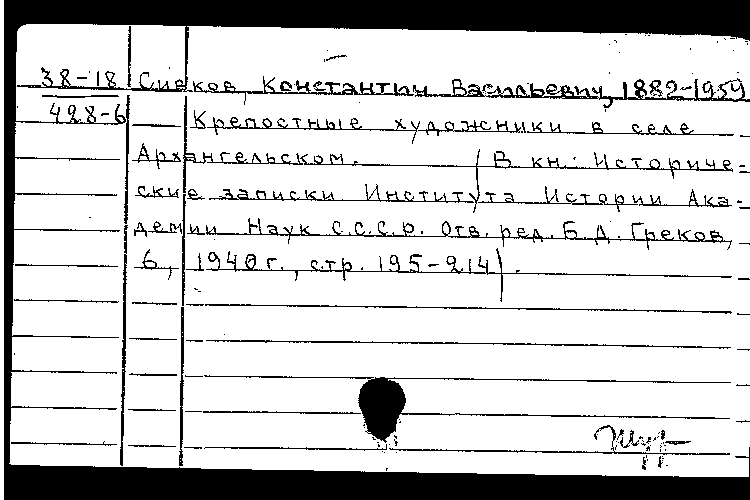 38-18 Сивков, Константин Васильевич, 1882-1959
428-6 Крепостные художники в селе
Архангельском. (В кн.: Историче=
ские записки Института Истории Ака-
демии Наук С.С.С.Р. Отв. ред. Б.Д. Греков,
6, 1940 г., стр. 195-214).